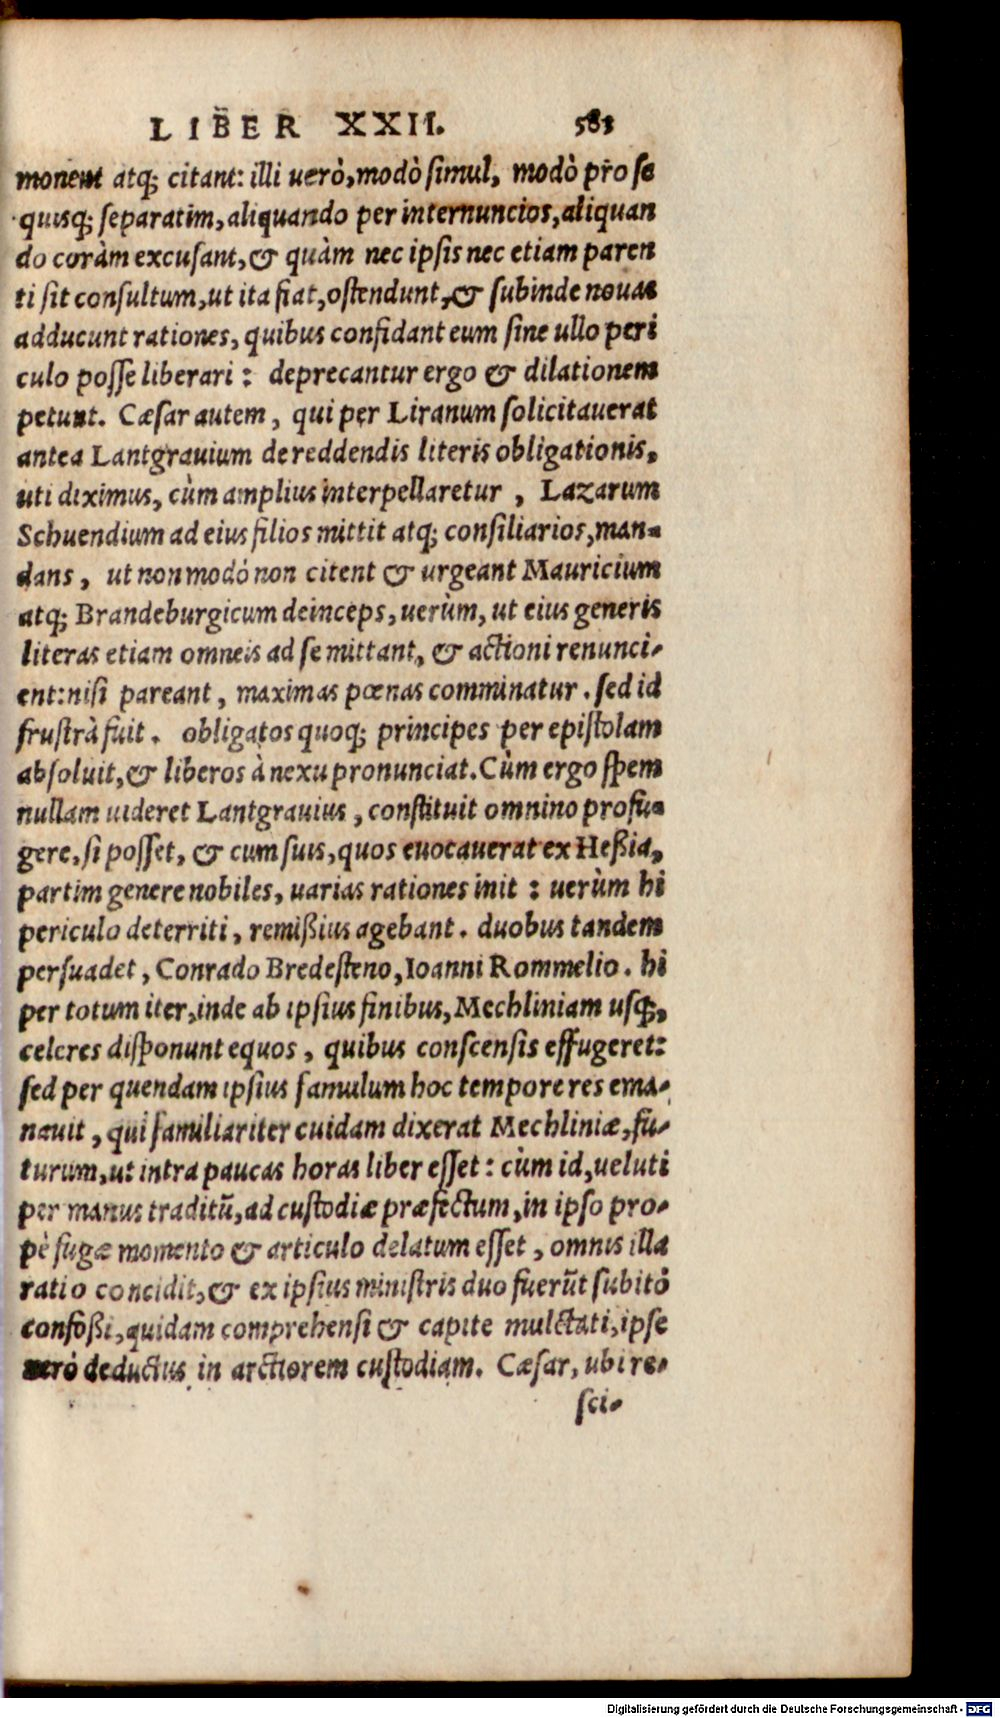 LIBER XXII. 583
monent atq; citant: illi uerò, modò simul, modò pro se
quisq; separatim, aliquando per internuncios, aliquan
do coràm excusant, & quàm nec ipsis nec etiam paren
ti sit consultum, ut ita fiat, ostendunt, & subinde nouas
adducunt rationes, quibus confidant eum sine ullo peri
culo posse liberari: deprecantur ergo & dilationem
petunt. Cæsar autem, qui per Liranum solicitauerat
antea Lantgrauium de reddendis literis obligationis,
uti diximus, cùm amplius interpellaretur, Lazarum
Schuendium ad eius filios mittit atq; consiliarios, man-
dans, ut non modò non citent & urgeant Mauricium
atq; Brandeburgicum deinceps, uerùm, ut eius generis
literas etiam omneis ad se mittant, & actioni renunci-
ent: nisi pareant, maximas pœnas comminatur. sed id
frustrà fuit. obligatos quoq; principes per epistolam
absoluit, & liberos à nexu pronunciat. Cùm ergo spem
nullam uideret Lantgrauius, constituit omnino profu-
gere, si posset, & cum suis, quos euocauerat ex Heßia,
partim genere nobiles, uarias rationes init: uerùm hi
periculo deterriti, remißius agebant. duobus tandem
persuadet, Conrado Bredesteno, Ioanni Rommelio. hi
per totum iter, inde ab ipsius finibus, Mechliniam usq;,
celeres disponunt equos, quibus conscensis effugeret:
sed per quendam ipsius famulum hoc tempore res ema-
nauit, qui familiariter cuidam dixerat Mechliniæ, fu-
turum, ut intra paucas horas liber esset: cùm id, ueluti
per manus traditū, ad custodiæ præfectum, in ipso pro-
pè fugæ momento & articulo delatum esset, omnis illa
ratio concidit, & ex ipsius ministris duo fuerūt subitò
confoßi, quidam comprehensi & capite mulctati, ipse
uerò deductus in arctiorem custodiam. Cæsar, ubi re-
sci-
Digitalisierung gefördert durch die Deutsche Forschungsgemeinschaft - DFG